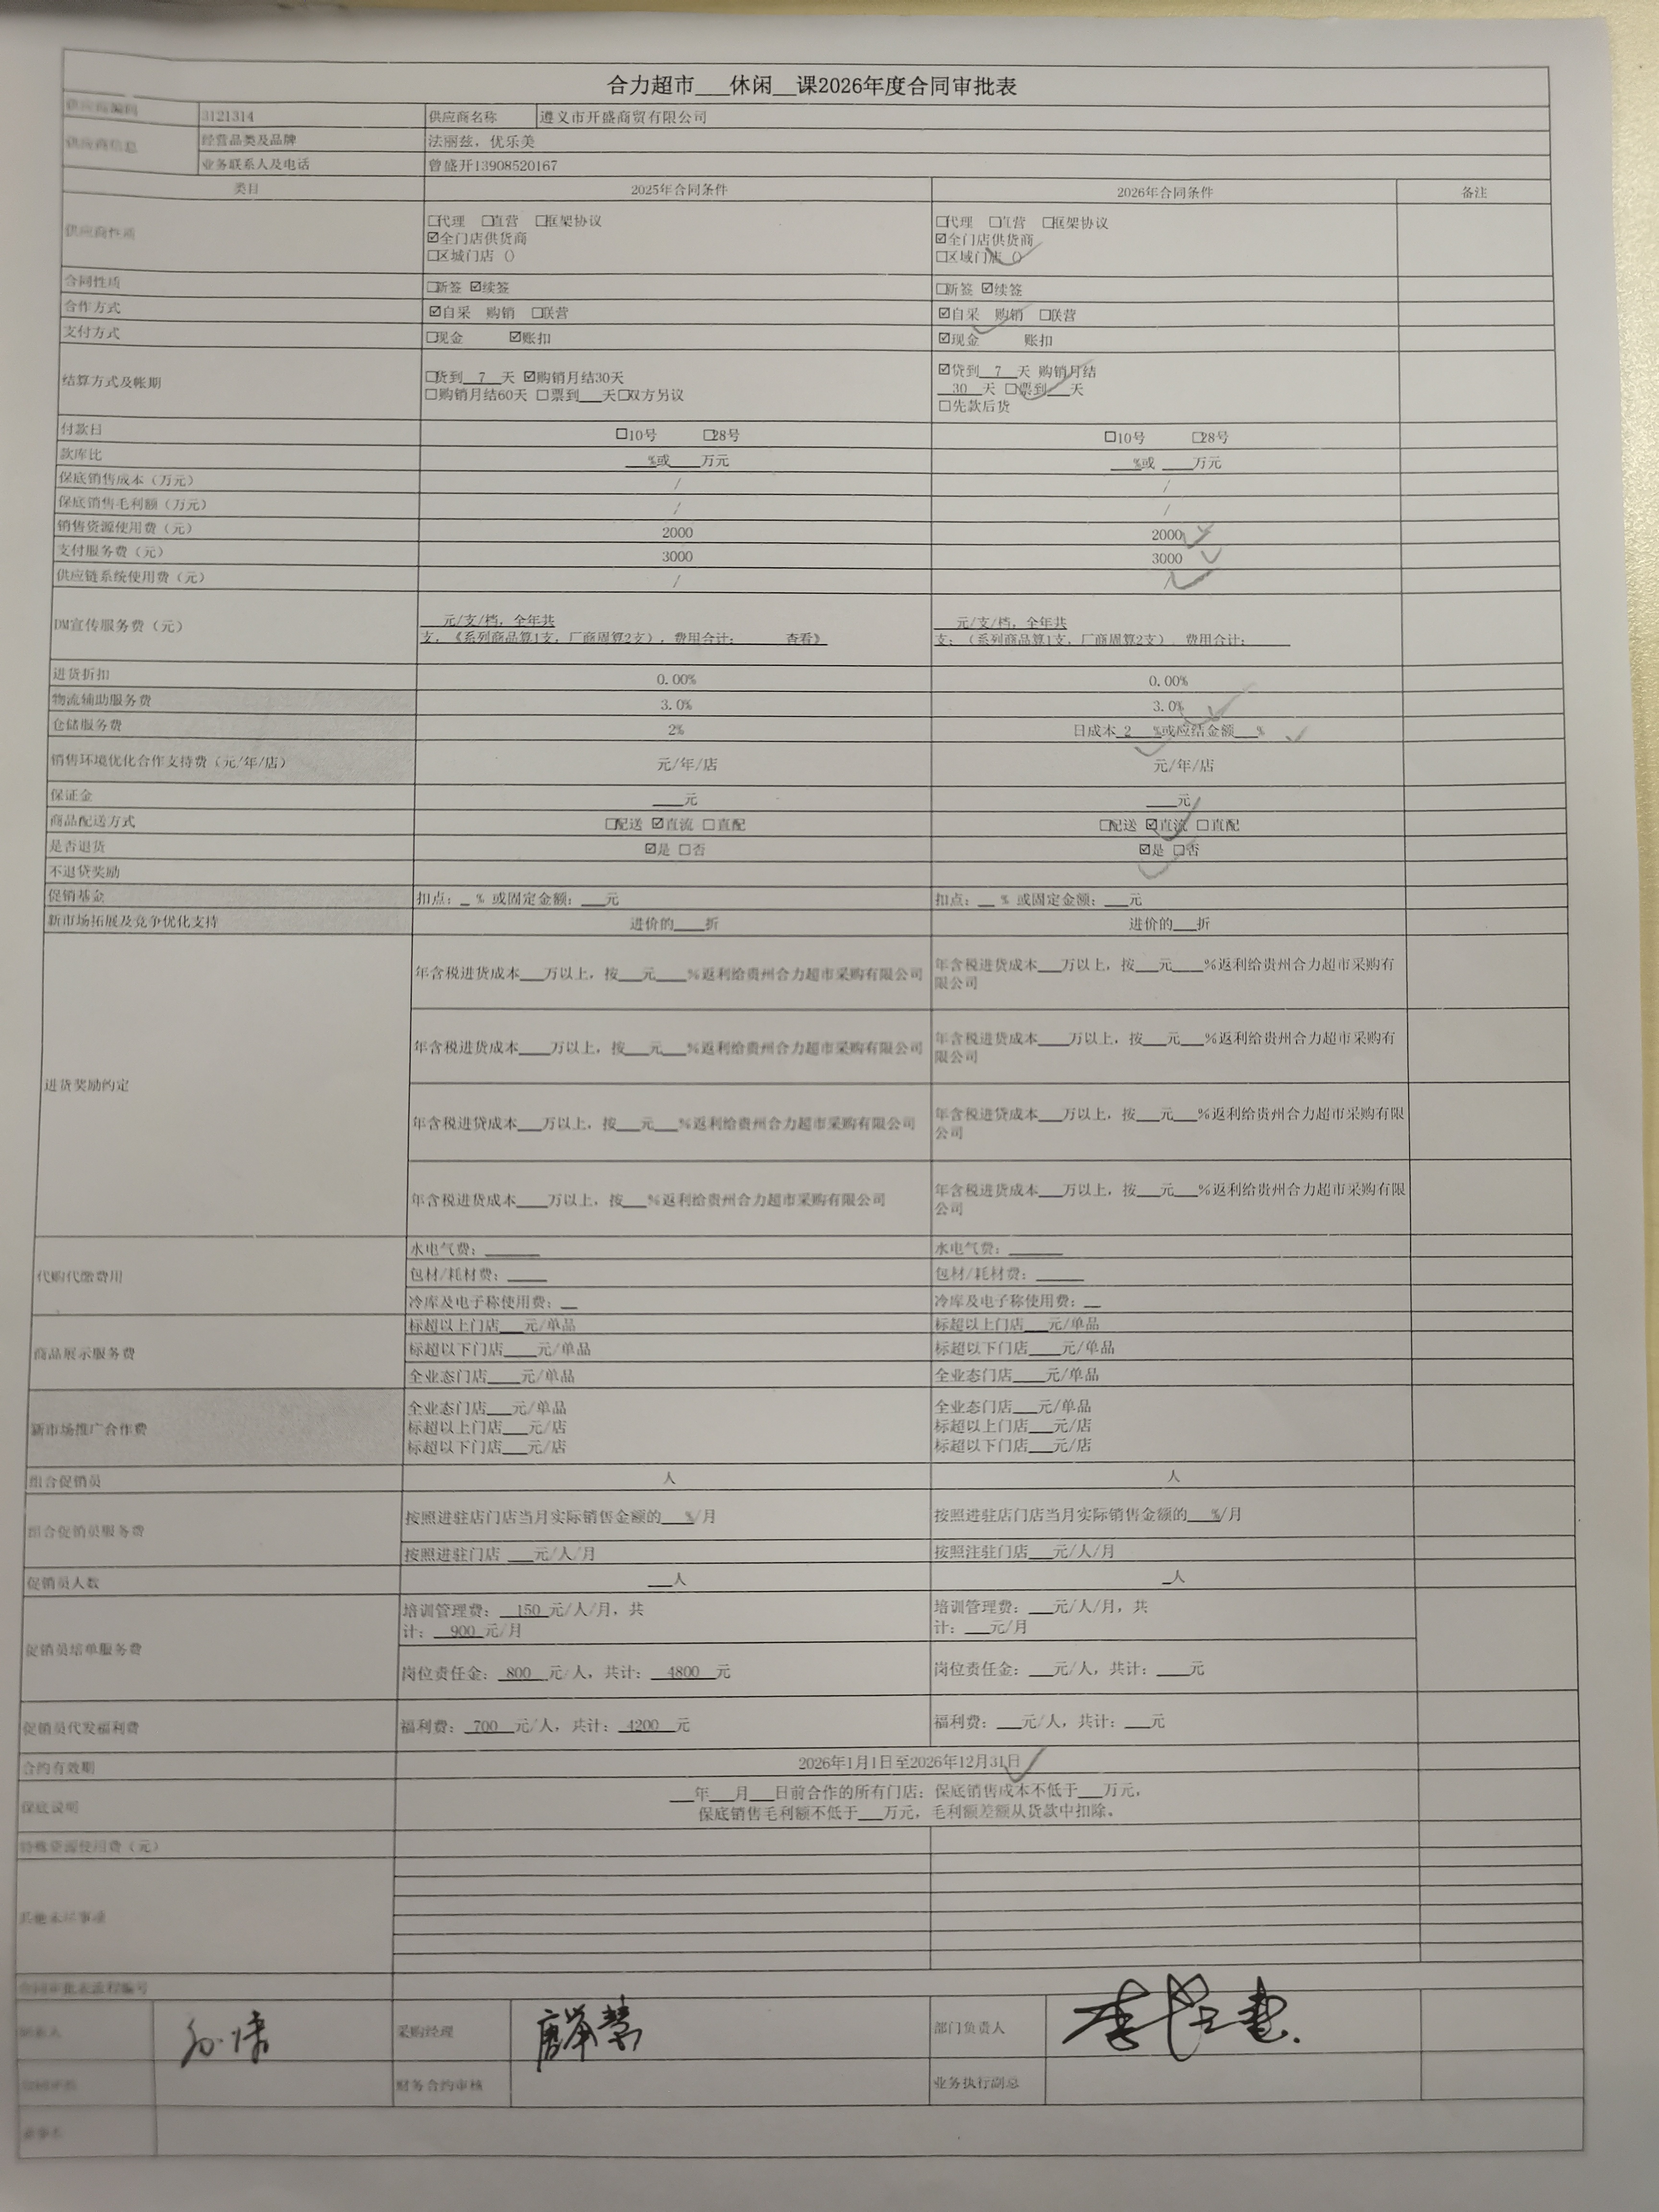 合力超市___休闲__课2026年度合同审批表
供应商编码 3121314 供应商名称 遵义市开盛商贸有限公司
供应商信息 经营品类及品牌 法丽兹，优乐美
业务联系人及电话 曾盛开13908520167
类目 2025年合同条件 2026年合同条件 备注
供应商性质
□代理 □直营 □框架协议 □代理 □直营 □框架协议
☑全门店供货商 ☑全门店供货商
□区城门店（） □区域门店（）
合同性质 □新签 ☑续签 □新签 ☑续签
合作方式 ☑自采 购销 □联营 ☑自采 购销 □联营
支付方式 □现金 ☑账扣 ☑现金 账扣
结算方式及帐期
□货到__7__天 ☑购销月结30天
□购销月结60天 □票到___天□双方另议
☑贷到__7__天 购销月结
__30__天 □票到___天
□先款后货
付款日 □10号 □28号 □10号 □28号
款库比 ___%或____万元 ___%或 ____万元
保底销售成本（万元） / /
保底销售毛利额（万元） / /
销售资源使用费（元） 2000 2000
支付服务费（元） 3000 3000
供应链系统使用费（元） / /
DM宣传服务费（元）
___元/支/档，全年共
支，《系列商品算1支，厂商周算2支），费用合计：______查看》
___元/支/档，全年共
支；（系列商品算1支，厂商周算2支），费用合计：_____
进货折扣 0.00% 0.00%
物流辅助服务费 3.0% 3.0%
仓储服务费 2% 日成本_2___%或应结金额___%
销售环境优化合作支持费（元/年/店） 元/年/店 元/年/店
保证金 ____元 ____元
商品配送方式 □配送 ☑直流 □直配 □配送 ☑直流 □直配
是否退货 ☑是 □否 ☑是 □否
不退贷奖励
促销基金 扣点：_ % 或固定金额：___元 扣点：__ % 或固定金额：___元
新市场拓展及竞争优化支持 进价的____折 进价的___折
进货奖励约定
年含税进货成本___万以上，按___元____%返利给贵州合力超市采购有限公司
年含税进货成本___万以上，按___元____%返利给贵州合力超市采购有
限公司
年含税进货成本____万以上，按___元___%返利给贵州合力超市采购有限公司
年含税进货成本____万以上，按___元___%返利给贵州合力超市采购有
限公司
年含税进贷成本___万以上，按___元___%返利给贵州合力超市采购有限公司
年含税进贷成本___万以上，按___元___%返利给贵州合力超市采购有限
公司
年含税进货成本____万以上，按___%返利给贵州合力超市采购有限公司
年含税进货成本___万以上，按___元___%返利给贵州合力超市采购有限
公司
代购代缴费用
水电气费：_______ 水电气费：_______
包材/耗材费：_____ 包材/耗材费：______
冷库及电子称使用费：__ 冷库及电子称使用费：__
商品展示服务费
标超以上门店___元/单品 标超以上门店___元/单品
标超以下门店____元/单品 标超以下门店____元/单品
全业态门店____元/单品 全业态门店____元/单品
新市场推广合作费
全业态门店___元/单品 全业态门店___元/单品
标超以上门店___元/店 标超以上门店___元/店
标超以下门店___元/店 标超以下门店___元/店
组合促销员 人 人
组合促销员服务费
按照进驻店门店当月实际销售金额的____%/月 按照进驻店门店当月实际销售金额的____%/月
按照进驻门店 ___元/人/月 按照注驻门店___元/人/月
促销员人数 ___人 _人
促销员培单服务费
培训管理费：__150_元/人/月，共
计：__900_元/月
培训管理费：___元/人/月，共
计：___元/月
岗位责任金：_800__元/人，共计：__4800__元 岗位责任金：___元/人，共计：____元
促销员代发福利费 福利费：_700__元/人，共计：_4200__元 福利费：___元/人，共计：___元
合约有效期 2026年1月1日至2026年12月31日
保底说明
___年___月___日前合作的所有门店：保底销售成本不低于___万元，
保底销售毛利额不低于___万元，毛利额差额从货款中扣除。
特殊资源使用费（元）
其他未尽事项
合同审批表流程编号
采购经理 唐翠慧 部门负责人
财务合约审核 业务执行副总